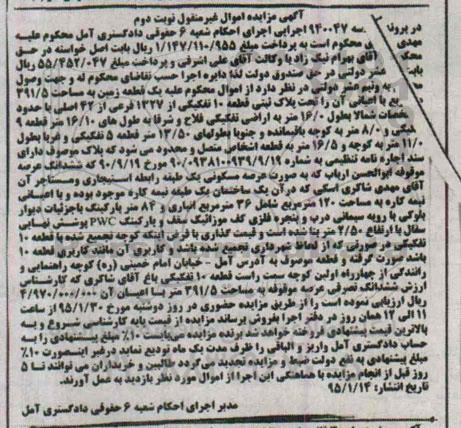 آگهی مزایده اموال غیرمنقول نوبت دوم
در پرونده سه ۹۴۰۰۴۷ اجرایی اجرای احکام شعبه ۶ حقوقی دادگستری آمل محکوم علیه
مهدی محکوم است به پرداخت مبلغ ۱/۱۴۷/۱۱۰/۹۵۵ ریال بابت اصل خواسته در حق
محک آقای بهرام نیک زاد با وکالت آقای علی اشرفی و پرداخت مبلغ ۵۵/۴۵۲/۰۴۷ ریال
بابت عشر دولتی در حق صندوق دولت لذا دایره اجرا حسب تقاضای محکوم له و جهت وصول
به ونیم عشر دولتی در نظر دارد از اموال محکوم علیه یک قطعه زمین به مساحت ۳۹۱/۵
ربع با اعیانی آن را تحت پلاک ثبتی قطعه ۱۰ تفکیکی از ۱۳۲۷ فرعی از ۴۲ اصلی با حدود
خصات شمالا بطول ۱۶/۰۰ متر به اراضی تفکیکی فلاح و شرقا به طول های ۱۶/۱۰ متر قطعه ۹
کیکی و ۸/۰۰ متر به کوچه باقیمانده و جنوبا بطولهای ۱۳/۵۰ متر قطعه ۵ تفکیکی و غربا بطول
۱۱/۰ متر به کوچه و ۱۶/۵ متر به قطعه اشخاص متصل و محدود می شود که پلاک موصوف دارای
سند اجاره نامه تنظیمی به شماره ۹۰/۰۹۳۸۱۰۰۹۳۹/۹/۱۹ مورخ ۹۰/۹/۱۹ که ششدانگ عرصه
موقوفه ابوالحسن ارباب که به صورت عرصه مسکونی یک طبقه رابطه استیجاری ومستاجر آن
آقای مهدی شاکری اسکی که در آن یک ساختمان یک طبقه نیمه کاره موجود بوده و با اعیانی
نیمه کاره به مساحت ۱۲۰ مترمربع شامل ۳۶ مترمربع انباری و ۸۴ متر پارکینگ باجزئیات دیوار
بلوکی با رویه سیمانی درب و پنجره فلزی کف موزائیک سقف و پارکینگ PWC پوستش نهایی
سفال با ارتفاع ۲/۵۰ متر بنا شده است و قیمت گذاری با فرض اینکه کوچه تجمیع شده با قطعه ۱۰
تفکیکی در صورتی که از لحاظ شهرداری تجمیع شده باشد و کاربری آن مانند کاربری قطعه ۱۰
باشد صورت گرفته و قطعه موصوف به آدرس آمل - خیابان امام خمینی (ره) کوچه راهنمایی و
رانندگی از چهارراه اولین کوچه سمت راست قطعه ۱۰ تفکیکی باغ آقای شاکری که کارشناس
ارزش ششدانگ تصرفی عرصه موقوفه به مساحت ۳۹۱/۵ متر با اعیسان آن ۴/۹۷۰/۰۰۰/۰۰۰
ریال ارزیابی نموده است را از طریق مزایده حضوری در روز دوشنبه مورخ ۹۵/۱/۳۰ از ساعت
۱۱ الی ۱۲ همان روز در دفتر اجرا بفروش برساند مزایده از قیمت پایه کارشناسی شروع و به
بالاترین قیمت پیشنهادی فروخته خواهد شد برنده مزایده می‌بایست ۱۰٪ مبلغ پیشنهادی را به
حساب دادگستری آمل واریز و الباقی را ظرف مدت یک ماه تودیع نماید درغیر اینصورت ۱۰٪
مبلغ پیشنهادی به نفع دولت ضبط و مزایده تجدید می‌گردد طالبین و خریداران می توانند تا ۵
روز قبل از انجام مزایده با هماهنگی این اجرا از اموال مورد نظر بازدید به عمل آورند.
تاریخ انتشار: ۹۵/۱/۱۴
مدیر اجرای احکام شعبه ۶ حقوقی دادگستری آمل